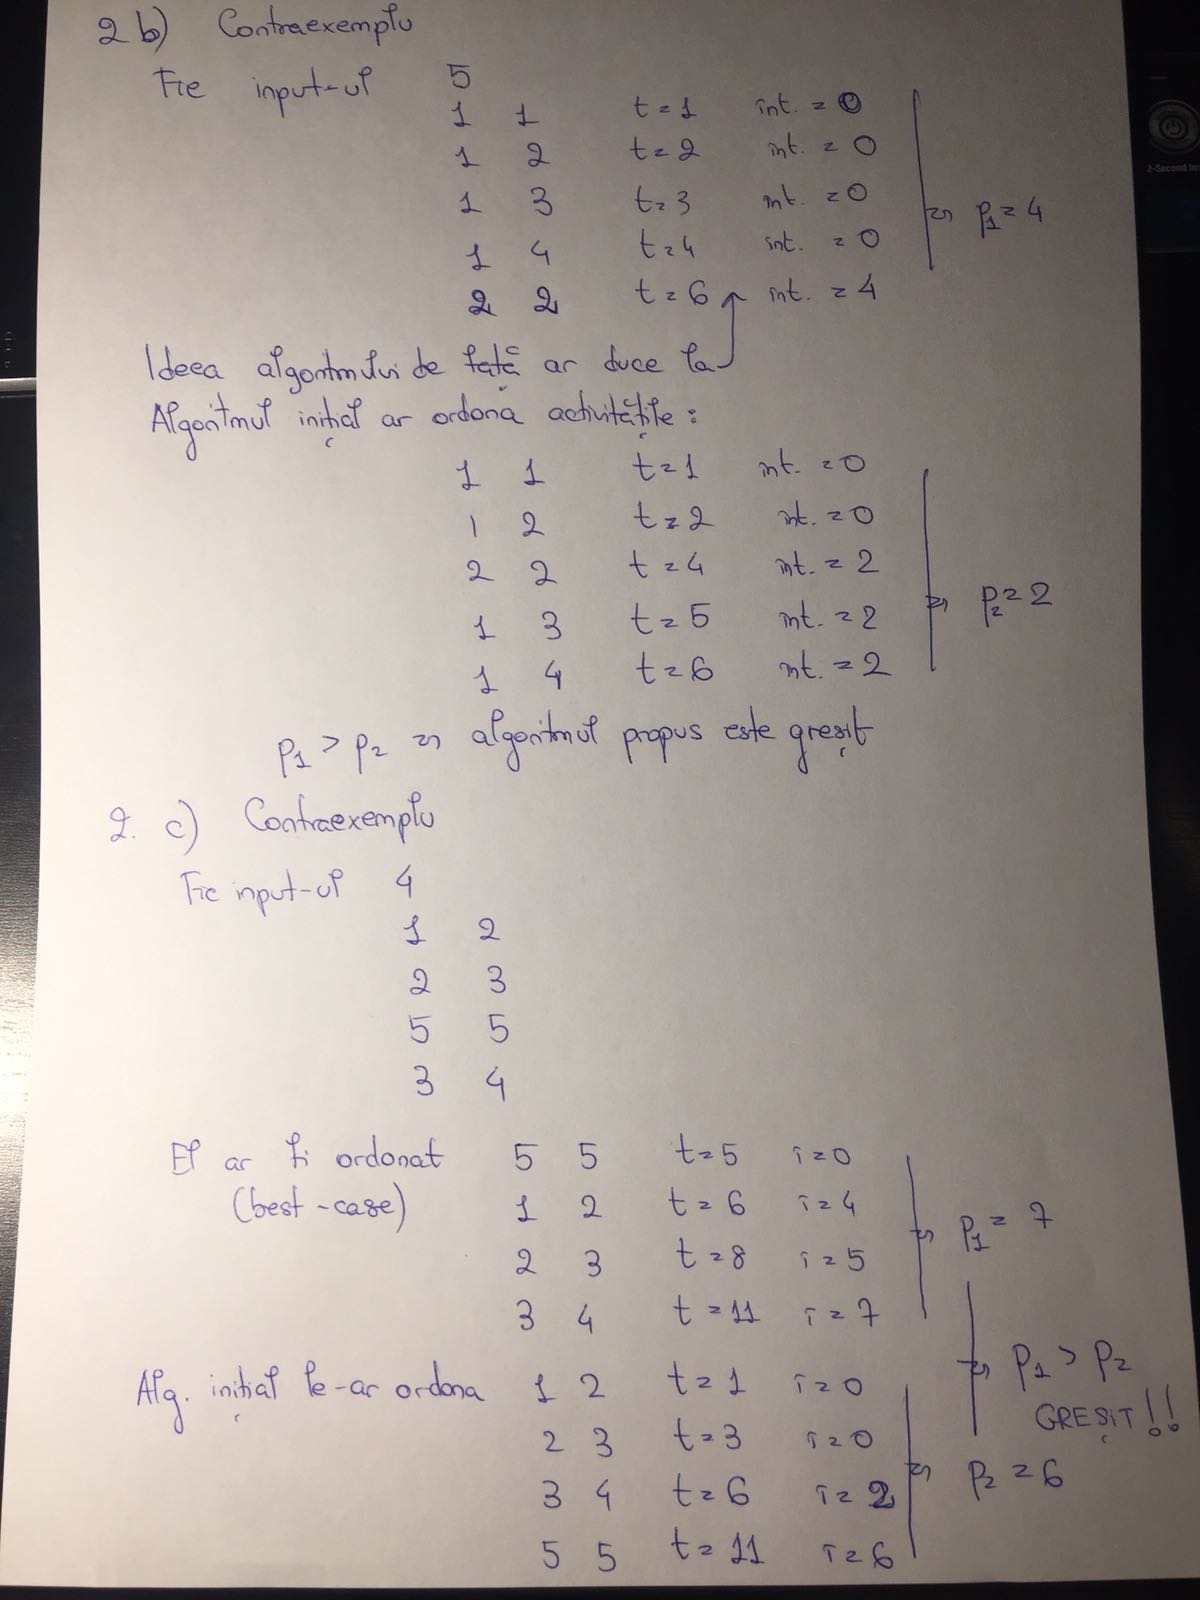 2 b) Contraexemplu
Fie input-ul 5
1 1 t=1 int.=0
1 2 t=2 int.=0
1 3 t=3 int.=0
1 4 t=4 int.=0 => p1=4
2 2 t=6 int.=4
Ideea algoritmului de față ar duce la
Algoritmul inițial ar ordona activitățile:
1 1 t=1 int.=0
1 2 t=2 int.=0
2 2 t=4 int.=2
1 3 t=5 int.=2 => p2=2
1 4 t=6 int.=2
p1 > p2 => algoritmul propus este greșit
2. c) Contraexemplu
Fie input-ul 4
1 2
2 3
5 5
3 4
El ar fi ordonat 5 5 t=5 i=0
(best-case) 1 2 t=6 i=4 => p1=7
2 3 t=8 i=5
3 4 t=11 i=7
=> p1 > p2
Alg. inițial le-ar ordona 1 2 t=1 i=0
GREȘIT!!
2 3 t=3 i=0
3 4 t=6 i=2 => p2=6
5 5 t=11 i=6